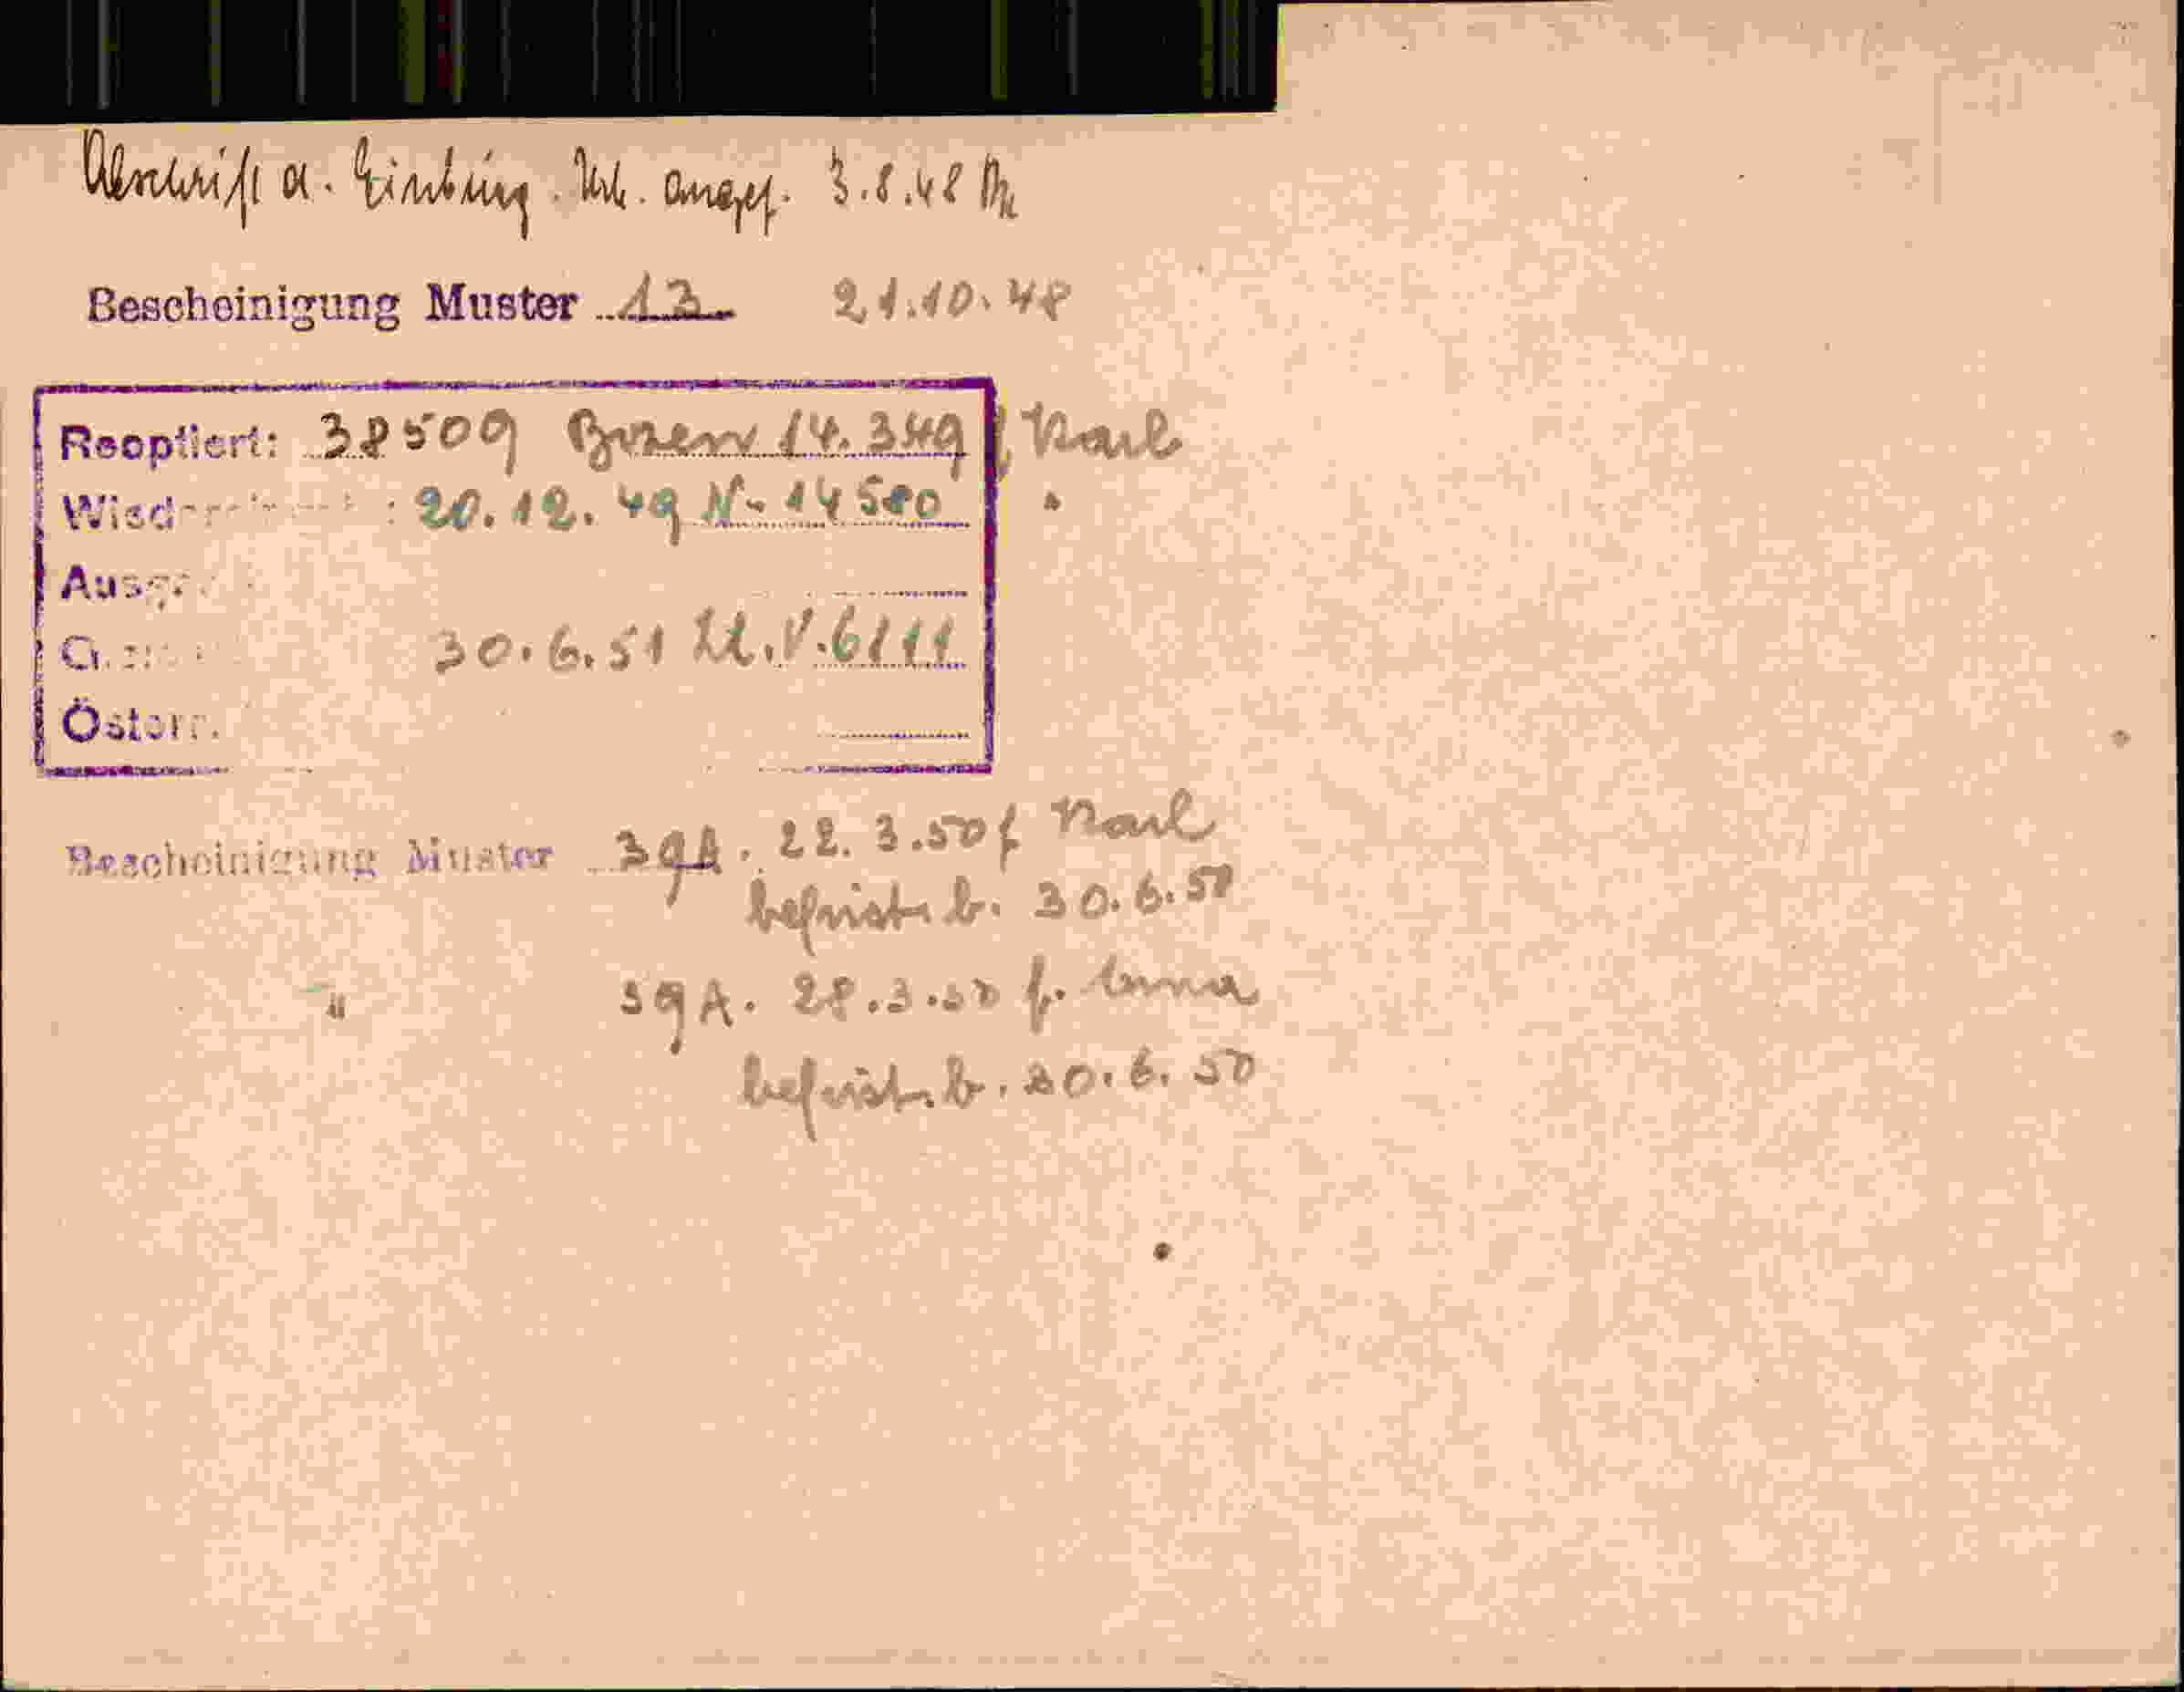 Abschrift d. Einbürg. Urk. ausgef. 3.8.48
Bescheinigung Muster 13 21.10.48
Reoptiert: 38509 Bozen 14.3.49 f Karl
: 20.12.49 N- 14580 "
30.6.51 U.V.6111
Österr.
Bescheinigung Muster 39A. 22.3.50 f Karl
befrist. b. 30.6.50
" 39A. 28.3.50 f. Anna
befrist. b. 30.6.50